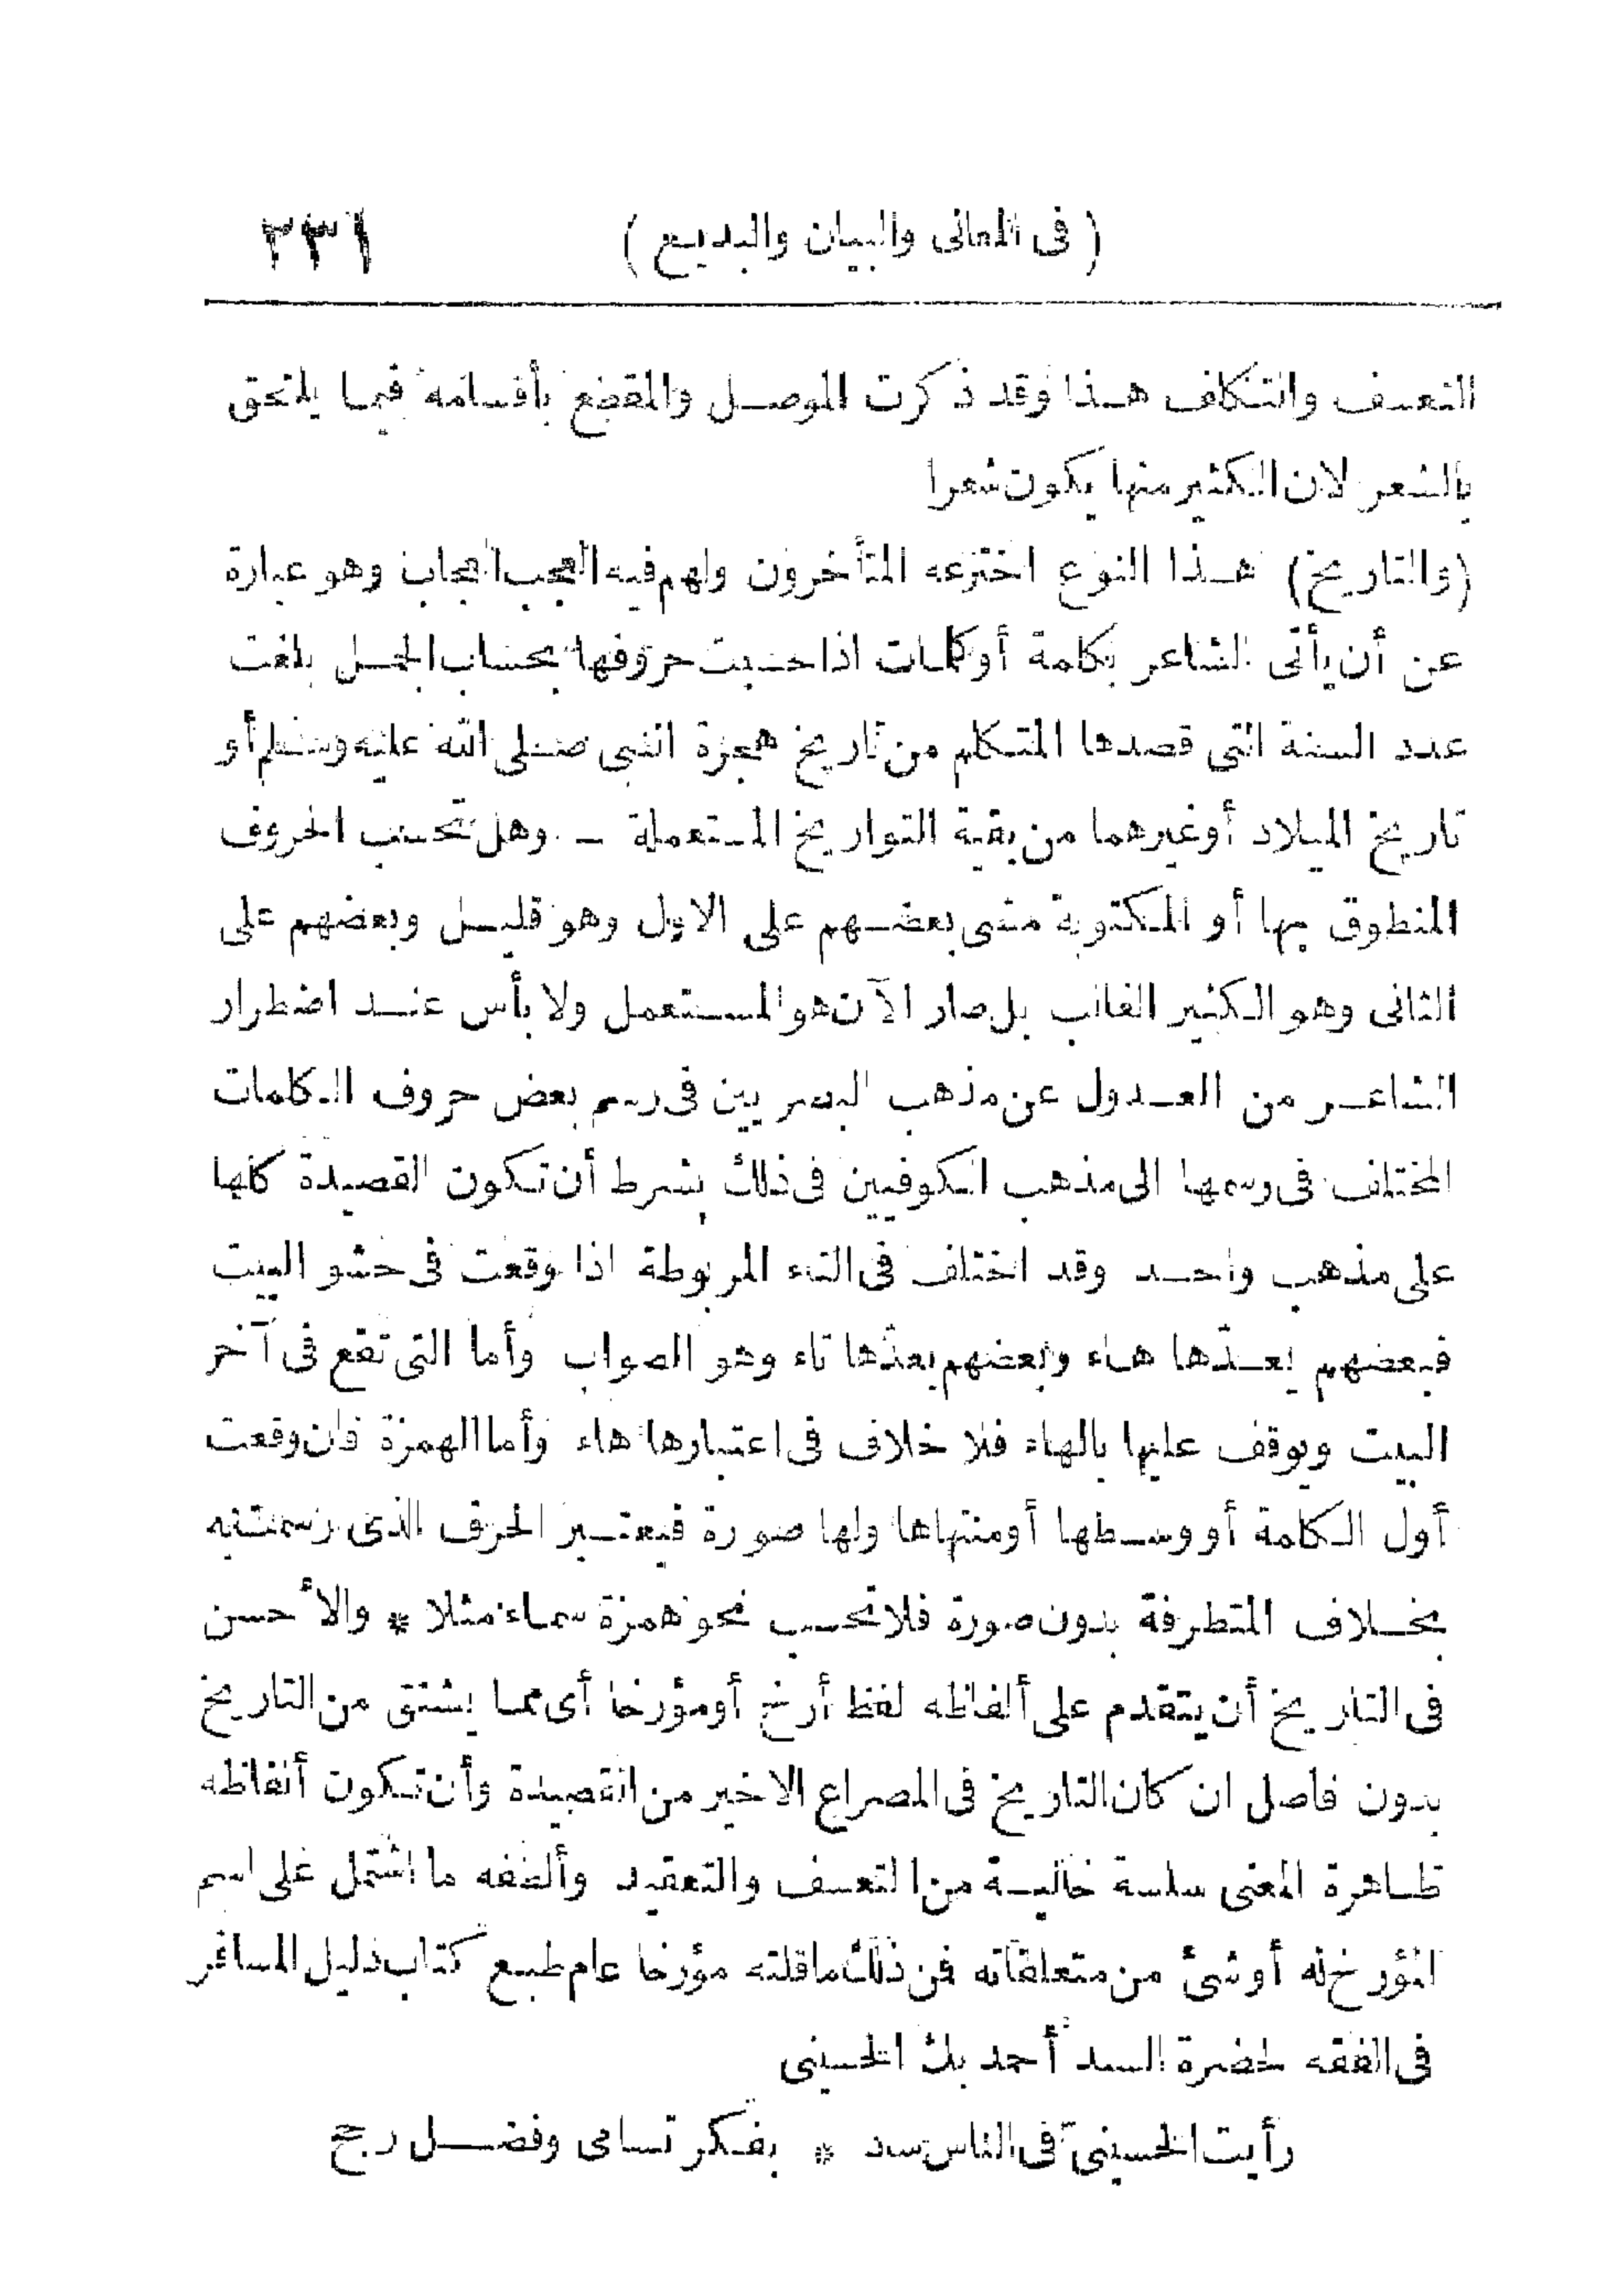 ( فى المعانى والبيان والبديع ) ٢٣١
التعسف والتكلف هذا وقد ذكرت الموصل والمقطع بأقسامه فيما يلتحق
بالشعر لان الكثير منها يكون شعرا
(والتاريخ) هذا النوع اخترعه المتأخرون ولهم فيه العجب العجاب وهو عبارة
عن أن يأتى الشاعر بكلمة أو كلمات اذا حسبت حروفها بحساب الجمل بلغت
عدد السنة التى قصدها المتكلم من تاريخ هجرة النبى صلى الله عليه وسلم أو
تاريخ الميلاد أو غيرهما من بقية التواريخ المستعملة – وهل تحسب الحروف
المنطوق بها أو المكتوبة مشى بعضهم على الاول وهو قليل وبعضهم على
الثانى وهو الكثير الغالب بل صار الآن هو المستعمل ولا بأس عند اضطرار
الشاعر من العدول عن مذهب البصريين فى رسم بعض حروف الكلمات
المختلف فى رسمها الى مذهب الكوفيين فى ذلك بشرط أن تكون القصيدة كلها
على مذهب واحد وقد اختلف فى التاء المربوطة اذا وقعت فى حشو البيت
فبعضهم يعدّها هاء وبعضهم يعدّها تاء وهو الصواب وأما التى تقع فى آخر
البيت ويوقف عليها بالهاء فلا خلاف فى اعتبارها هاء وأما الهمزة فان وقعت
أول الكلمة أو وسطها أو منتهاها ولها صورة فيعتبر الحرف الذى رسمت به
بخلاف المتطرفة بدون صورة فلا تحسب نحو همزة سماء مثلا * والأحسن
فى التاريخ أن يتقدم على ألفاظه لفظ أرخ أو مؤرخا أى مما يشتق من التاريخ
بدون فاصل ان كان التاريخ فى المصراع الاخير من القصيدة وأن تكون ألفاظه
ظاهرة المعنى سلسة خالية من التعسف والتعقيد وألطفه ما اشتمل على اسم
المؤرخ له أو شئ من متعلقاته فمن ذلك ما قلته مؤرخا عام طبع كتاب دليل المسافر
فى الفقه لحضرة السيد أحمد بك الحسينى
رأيت الحسينىّ فى الناس سد * بفكر تسامى وفضل رجح